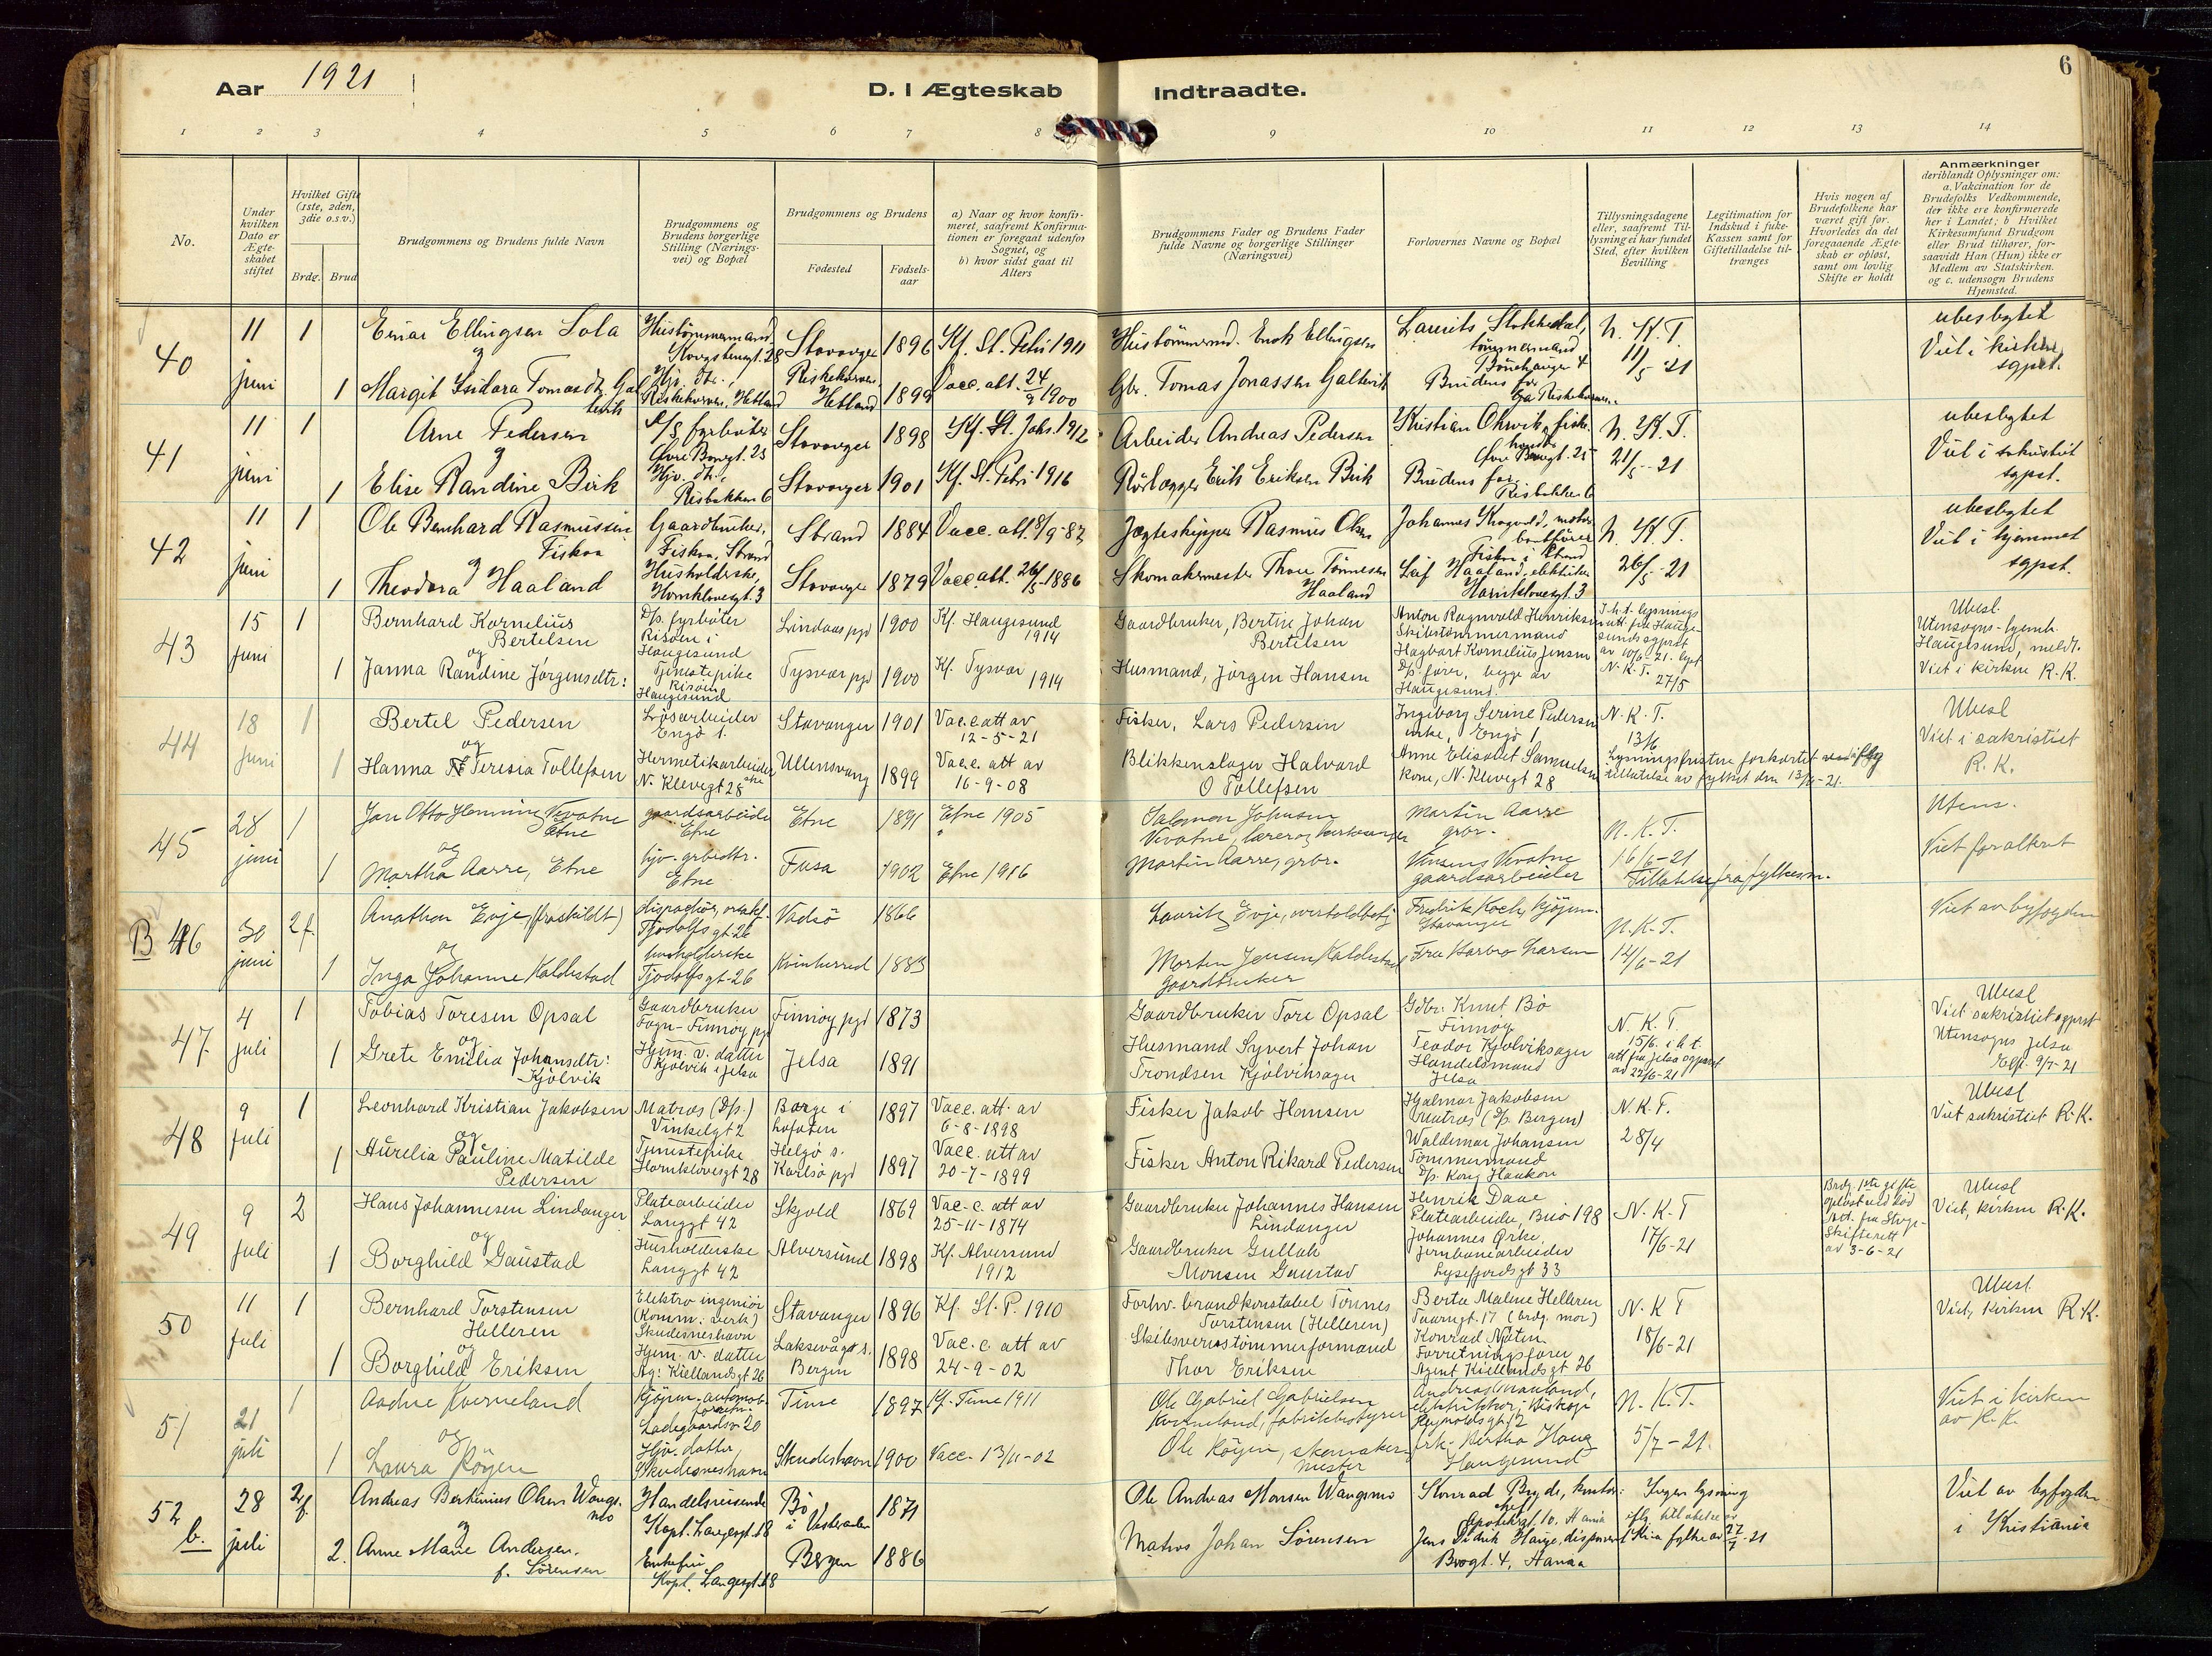 Aar 1921
D. I Ægteskab Indtraadte.
6
1 2 3 4 5 6 7 8 9 10 11 12 13 14
No.
Under hvilken Dato er Ægteskabet stiftet
Hvilket Gifte (1ste, 2den, 3die o.s.v.)
Brdg. Brud
Brudgommens og Brudens fulde Navn
Brudgommens og Brudens borgerlige Stilling (Næringsvei) og Bopæl
Brudgommens og Brudens
Fødested
Fødselsaar
a) Naar og hvor konfirmeret, saafremt Konfirmationen er foregaat udenfor Sognet, og
b) hvor sidst gaat til Alters
Brudgommens Fader og Brudens Fader fulde Navne og borgerlige Stillinger (Næringsvei)
Forlovernes Navne og Bopæl
Tillysningsdagene eller, saafremt Tillysning ei har fundet Sted, efter hvilken Bevilling
Legitimation for Indskud i fuke-Kassen samt for Giftetilladelse tiltrænges
Hvis nogen af Brudefolkene har været gift før. Hvorledes da det foregaaende Ægteskab er opløst, samt om lovlig Skifte er holdt
Anmærkninger
deriblandt Oplysninger om: a. Vakcination for de Brudefolks Vedkommende, der ikke ere konfirmerede her i Landet; b Hvilket Kirkesamfund Brudgom eller Brud tilhører, forsaavidt Han (Hun) ikke er Medlem av Statskirken. og c. udensogn Brudens Hjemsted.
40 11 juni 1 Einar Ellingsen Sola Hustømmermand, Stavanger 1896 Kf. St. Petri 1911 Hustømmermd. Enok Ellingsen Laurits Stokkedal, tømmermand N. K. T. 11/5 21 ubeslegtet
og
1 Margit Isidora Tomasdtr. Hjv. dtr., Hetland 1899 Vacc. att. 24/9 1900 Gbr. Tomas Jonassen Galtevik Brudens far Viet i kirken sgpst.
41 11 juni 1 Arne Pedersen fyrbøter Øvre Stavanger 1898 Kf. St. Johs. 1912 Arbeider Andreas Pedersen Kristian N. K. T. 21/5-21 ubeslegtet
og
1 Elise Randine Birk Hjv. dtr., Risbakken 6 Stavanger 1901 Kf. St. Petri 1916 Rørlægger Erik Eriksen Birk Brudens far, Risbakken 6 Viet i sakristiet sgpst.
42 11 juni 1 Ole Bernhard Rasmussen Fiskaa Gaardbruker, Fiskaa, Strand Strand 1884 Vacc. att. 8/9-87 Jægteskipper Rasmus Olsen Johannes motorbaatfører Fiskaa i Strand N. K. T. 26/5-21 ubeslegtet
og
1 Theodora Haaland Husholderske, Hornklovesgt. 3 Stavanger 1879 Vacc. att. 26/5-1886 Skomakermester Thore Tønnesen Haaland Leif Haaland, elektriker Hornklovesgt. 3 Viet i hjemmet sgpst.
43 15 Juni 1 Bernhard Kornelius Bertelsen D/s. fyrbøter Risøen i Haugesund Lindaas pgd 1900 Kf. Haugesund 1914 Gaardbruker, Bertin Johan Bertelsen Anton Ragnvald Henriksen Skibstømmermand I.h.t. lysnings att. fra Haugesunds sgprst av 10/6-21. lyst N. K. T. 27/5 Ubesl.
og
1 Janna Randine Jørgensdtr: Tjenestepike Risøen Haugesund Tysvær pgd 1900 Kf. Tysvær 1914 Husmand, Jørgen Hansen Hagbart Kornelius Jensen D/s fører, begge av Haugesund. Utensogns - hjemh. Haugesund, meldt. Viet i kirken R. K.
44 18 Juni 1 Bertel Pedersen Løsarbeider Engø 1. Stavanger 1901 Vac.c att av 12-5-21 Fisker, Lars Pedersen Ingeborg Serine Pedersen enke, Engø 1 N. K. T. 13/6 Ubesl
og
1 Hanna Teresia Tollefsen Hermetikarbeiderske N. Klevegt 28 Ullensvang 1899 Vac.c. att av 16-9-08 Blikkenslager Halvard O Tollefsen Anne Elisabet Samuelsen kone, N. Klevegt 28 Lysningsfristen forkortet iflg tillatelse av fylket den 13/6-21. Viet i sakristiet R. K.
45 28 juni 1 Jon Otto Henning Vevatne Etne gaardsarbeider Etne Etne 1891 Etne 1905 Salomon Johnsen Vevatne, lærer og kirkesanger Martin Aarre grbr. N. K. T. 16/6-21 Utens.
og
1 Martha Aarre, Etne hjv. grbrdtr. Etne Fusa 1902 Etne 1916 Martin Aarre, grbr. Vinsens Vevatne gaardsarbeider Tillatelse fra fylkesm. Viet foralteret
B 46 30 juni 2 f. Anathon Evje, (fraskildt) Tjodolfsgt 26 Vadsø 1866 Lauritz Evje, overtoldbetj Fredrik Koch, kjøpm. Stavanger N. K. T. 14/6-21 Viet av byfogden
og
1 Inga Johanne Kaldestad husholderske Tjodolfsgt-26 Kvinherred 1883 Morten Jensen Kaldestad gaardbruker Fru Barbro Larsen
47 4 juli 1 Tobias Toresen Opsal Gaardbruker Fogn-Finnøy pgd Finnøy pgd 1873 Gaardbruker Tore Opsal Gdbr: Knut Bø Finnøy N. K. T. 15/6. i h.t. att fra Jelsa sgprest av 22/6-21 Ubesl
og
1 Grete Emilia Johansdtr: Kjølvik Hjem. v. datter Kjølvik i Jelsa Jelsa 1891 Husmand Syvert Johan Trondsen Kjølviksager Teodor Kjølviksager Handelsmand Jelsa Viet sakristiet sgprst Utensogns Jelsa 9/7-21
48 9 Juli 1 Leonhard Kristian Jakobsen Matros (D/s.) Vinkelgt 2 Borge i Lofoten 1897 Vacc. att. av 6-8-1898 Fisker Jakob Hansen Hjalmar Jakobsen Matros (D/s Bergen) N. K. T. 28/4 Ubesl
og
1 Aurelia Pauline Matilde Pedersen Tjenestepike Hornklovesgt 28 Helgø s. Karlsø pgd 1897 Vacc. att av 20-7-1899 Fisker Anton Rikard Pedersen Waldemar Johansen Tømmermand D/s. Kong Haakon Viet sakristiet R. K.
49 9 Juli 2 Hans Johannesen Lindanger Platearbeider Langgt 42 Skjold 1869 Vac.c. att av 25-11-1874 Gaardbruker Johannes Hansen Lindanger Henrik Daae Platearbeider, Buø 198 N. K. T 17/6-21 Brdg. 1ste gifte opløst ved død att. fra Stvgr. Skifterett av 3-6-21 Ubesl
og
1 Borghild Gaustad Husholderske Langgt 42 Alversund 1898 Kf. Alversund 1912 Gaardbruker Gullak Monsen Gaustad Johannes Ørke, Jernbanearbeider Lysefjordsgt 33 Viet, kirken R. K.
50 11 Juli 1 Bernhard Torstensen Helleren Elektro ingeniør (Komm: verk) Skudesneshavn Stavanger 1896 Kf. St. P. 1910 Forhv. brandkonstabel Tønnes Torstensen (Helleren) Berta Maline Helleren Taarngt. 17 (brdg. mor) N. K T 18/6-21 Ubesl
og
1 Borghild Eriksen Hjem. v. datter Ag: Kiellandsgt 26 Laksevåg s. Bergen 1898 Vac.c. att av 24-9-02 Skibsverstømmerformand Thor Eriksen Konrad Forretningsfører Agent Kiellandsgt 26 Viet, kirken R. K.
51 21 juli 1 Aadne Kverneland kjøpm. automob. forretn. Ladegaardsv. 20 Time 1897 Kf. Time 1911 Ole Gabriel Gabrielsen Kverneland, fabrikbestyrer Andreas elektriker, Biskop Reynoldsgt 12 N. K. T. 5/7-21. Viet i kirken av R. K.
og
1 Laura Køyen Hjv. datter, Skudesneshavn Skudeshavn 1900 Vacc. 13/11-02 Ole Køyen, skomakermester frk. Bertha Haug Haugesund
52 b. 28 juli 2 f. Andreas Bertinius Olsen Wangsmo Handelsreisende Kapt. Langesgt. 18 Bø i Vesteraalen 1871 Ole Andreas Monsen Wangsmo Konrad Bryde, kontorchef, Apotekergt. 10. Ingen lysning iflg. tillatelse av Kr.a fylke av 27/7-21 Viet av byfogden i Kristiania
og
2. Anne Marie Andersen, f. Sørensen Enkefru Kapt. Langesgt. 18 Bergen 1886 Matros Johan Sørensen Jens Didrik Hauge, disponent